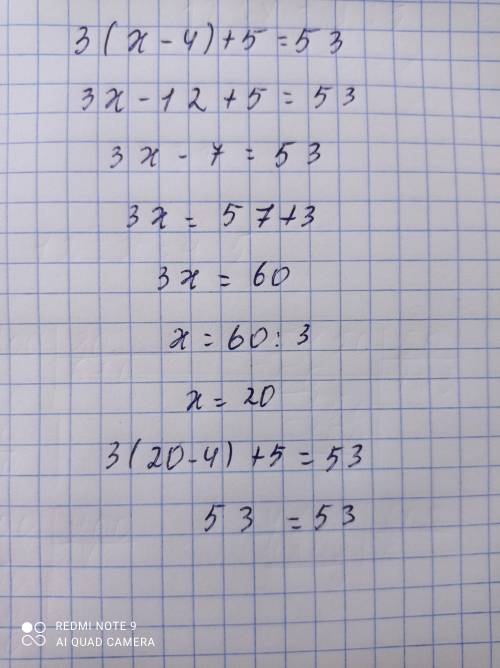 3(x-4)+5=53
3x-12+5=53
3x-7=53
3x=57+3
3x=60
x=60:3
x=20
3(20-4)+5=53
53=53
REDMI NOTE 9
AI QUAD CAMERA